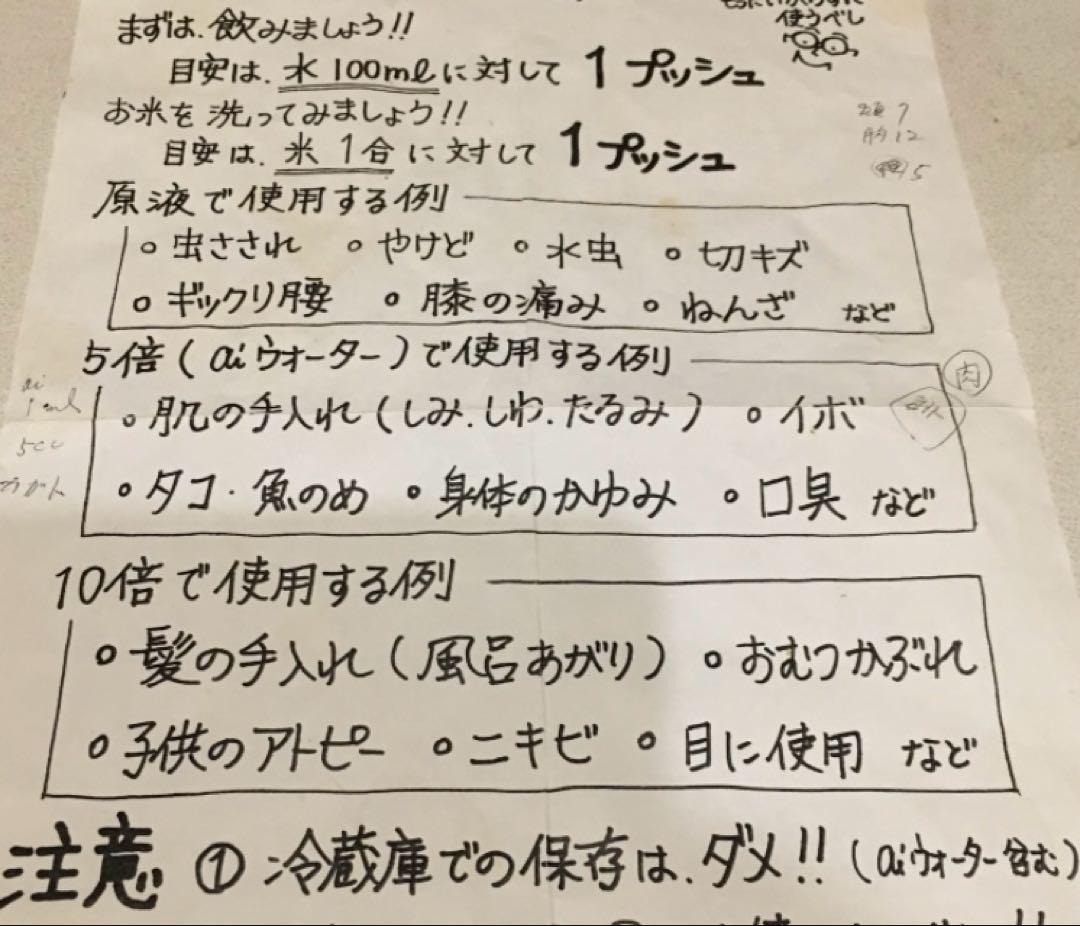 使うべし
まずは、飲みましょう!!
目安は、水100mlに対して 1プッシュ
お米を洗ってみましょう!!
目安は、米1合に対して 1プッシュ
原液で使用する例
○虫さされ ○やけど ○水虫 ○切キズ
○ギックリ腰 ○膝の痛み ○ねんざ など
5倍(aiウォーター)で使用する例
○肌の手入れ(しみ.しわ.たるみ) ○イボ
○タコ・魚のめ ○身体のかゆみ ○口臭 など
肉
ai
1ml
5cc
10倍で使用する例
○髪の手入れ(風呂あがり) ○おむつかぶれ
○子供のアトピー ○ニキビ ○目に使用 など
注意 ①冷蔵庫での保存は、ダメ!!(aiウォーター含む)